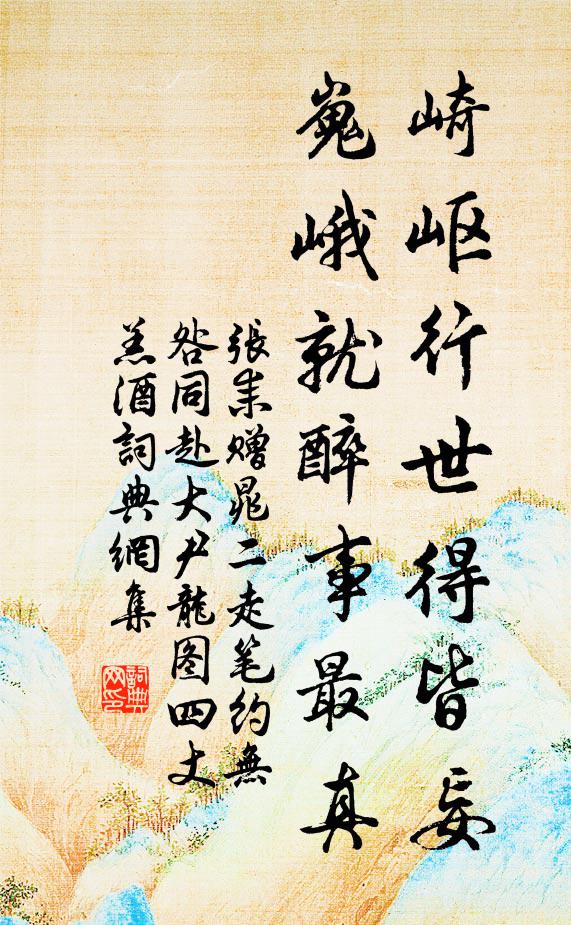 崎岖行世得皆妄
嵬峨就醉事最真
張耒赠晁二走笔约無
咎同赴大尹龍图四丈
羔酒詞典網集
詞典网印